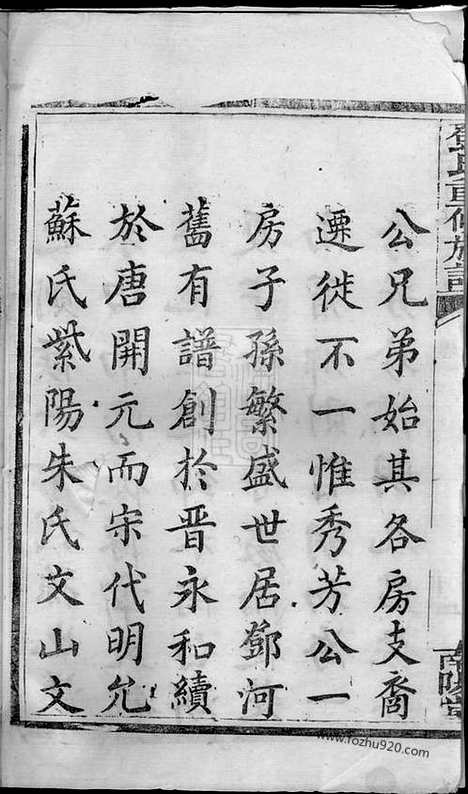 公兄弟始其各房支裔
遷徙不一惟秀芳公一
房子孫繁盛世居鄧河
舊有譜創於晉永和續
於唐開元而宋代明允
蘇氏紫陽朱氏文山文
鄧氏重修族譜
南陽堂
www.fozhu920.com